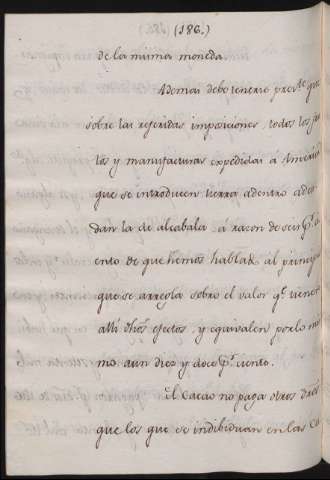 (186.)
de la misma moneda.
Ademas debe tenerse pres.te que
sobre las referidas imposiciones, todos los fru
tos y manufacturas expedidas á America
que se introducen tierra adentro adeu
dan la de alcabala á razon de seis p.r ci
ento de que hemos hablado al principio
que se arregla sobre el valor q.e tienen
alli dhõs efectos, y equivalen por lo mis
mo aun diez y doce p.r ciento.
El Cacao no paga otros dros
que los que se indibiduan en las Ca